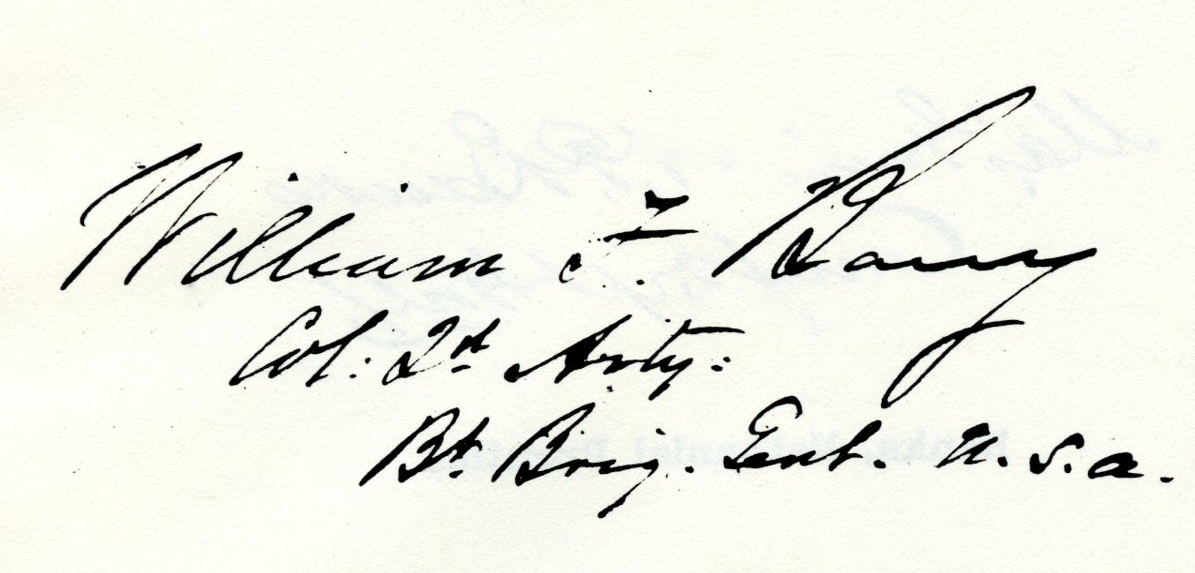 William F. Barry
Col: 2d Arty:
Bt Brig. Genl. U.S.A.